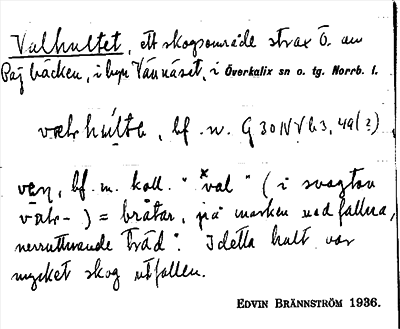 Valhultet, ett skogsområde strax Ö. om
Paj bäcken, i byn Vännäset, i Överkalix sn o. tg. Norrb. l.
hu̇lta, bf. n. G 30 IV b 3, 49 (?)
bf. m. koll. "ˣval" (i svagton
= bråtar, på marken nedfallna,
nerruttnande träd". I detta hult var
mycket skog utfallen.
EDVIN BRÄNNSTRÖM 1936.